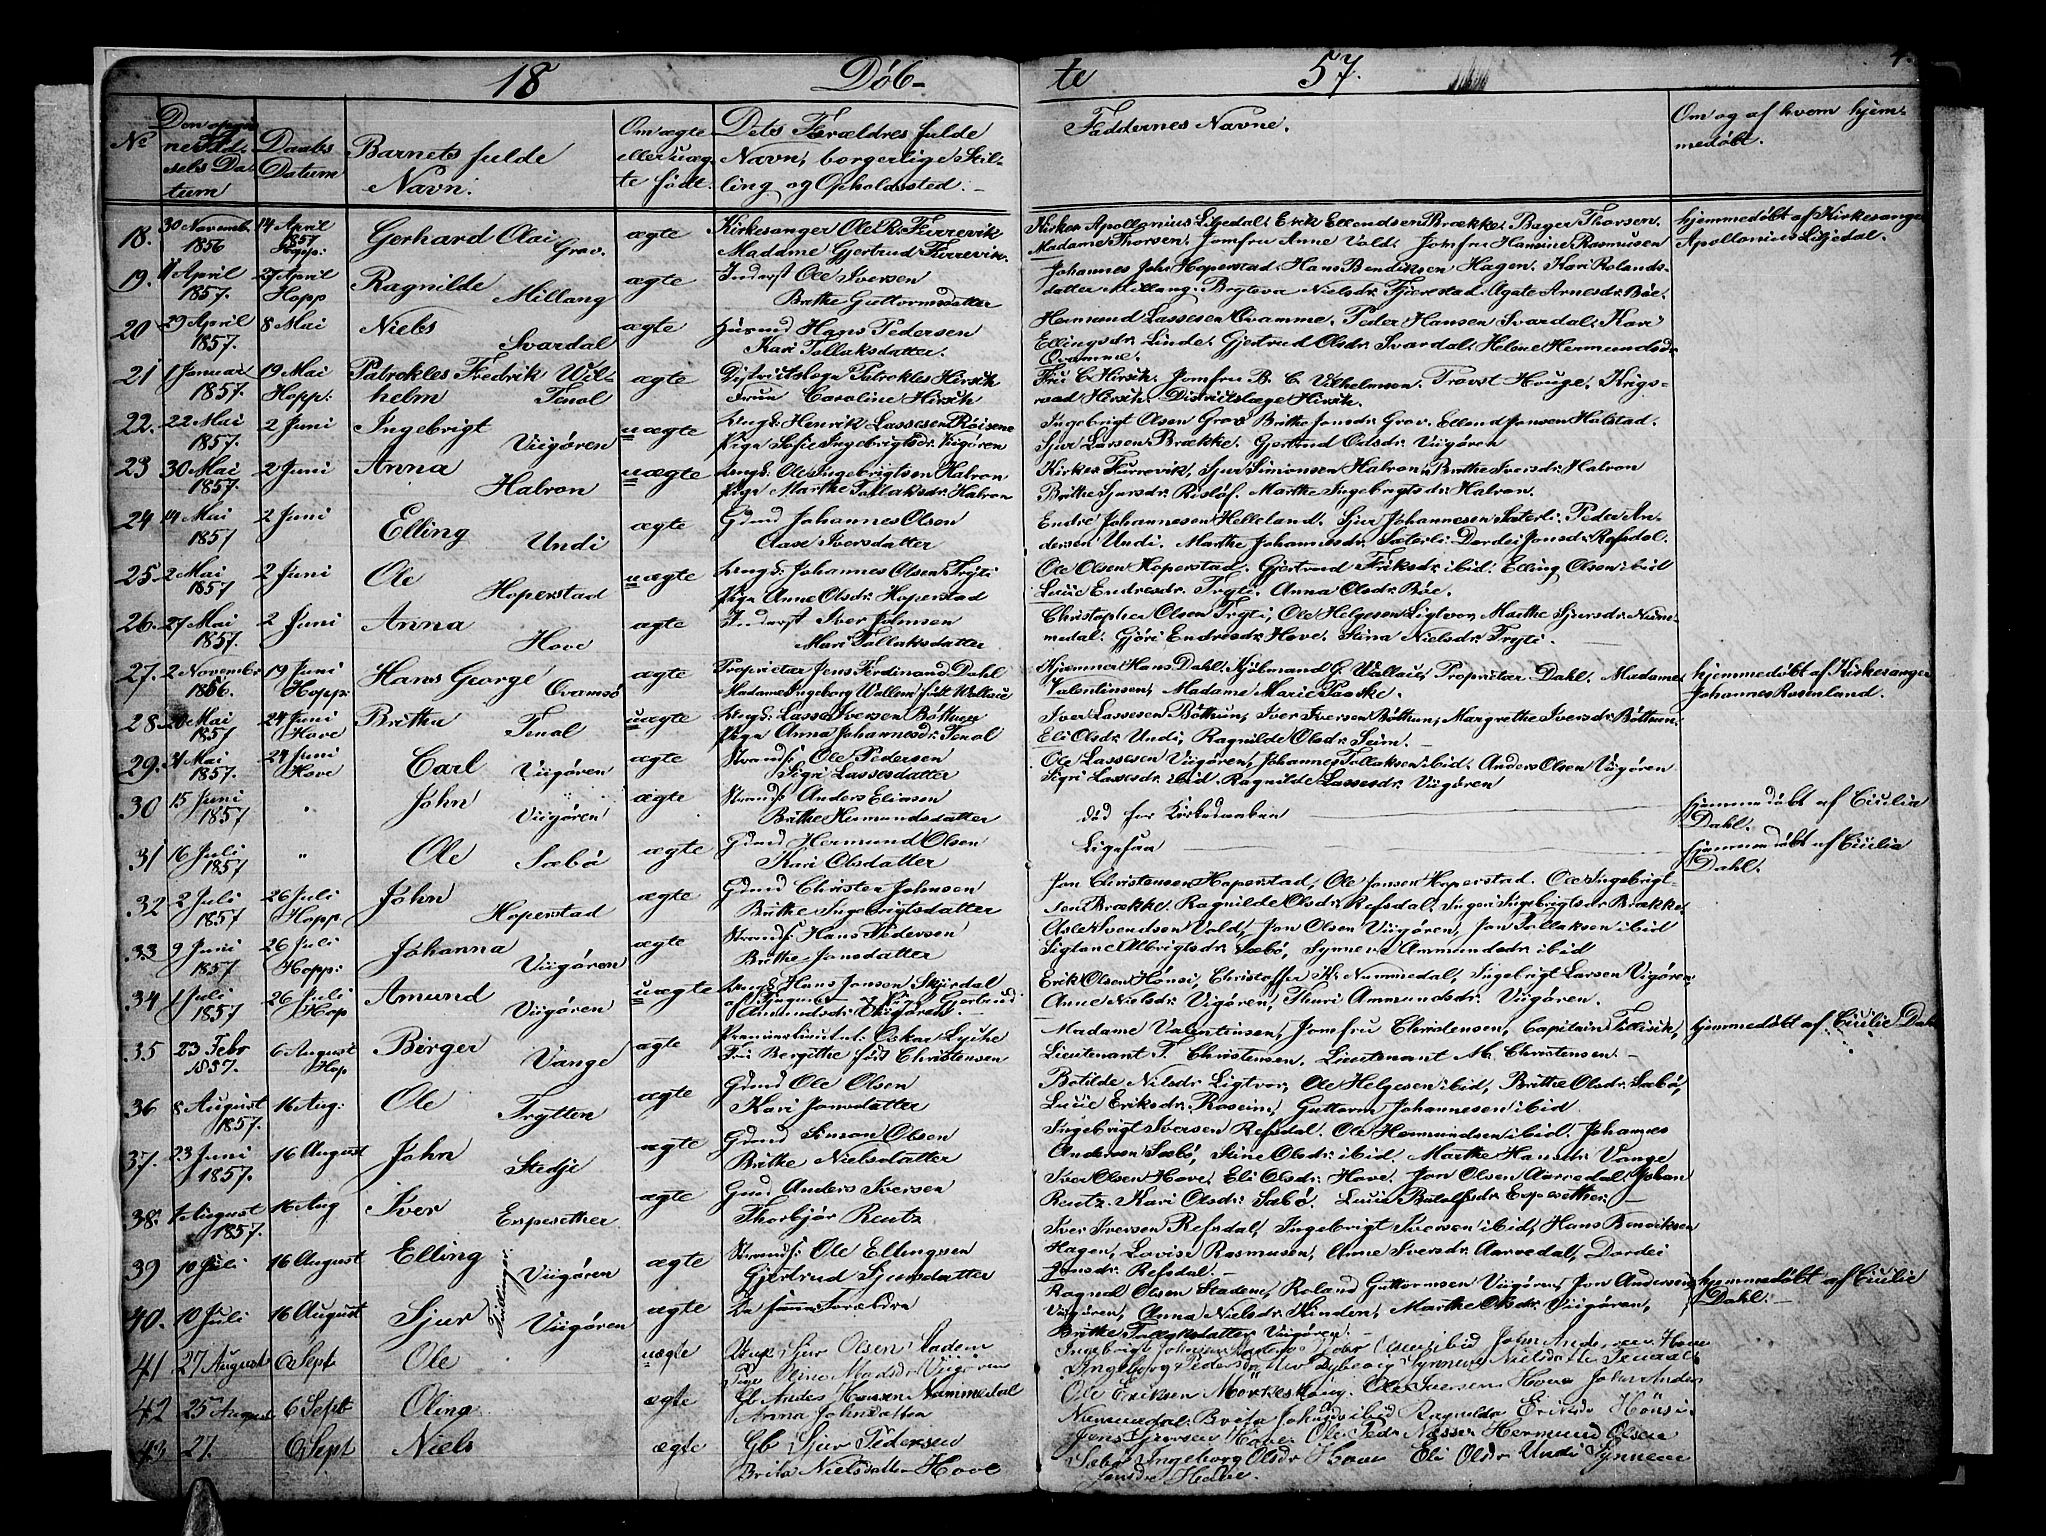 18 Döb- te 57.
No Den opgivne Födselsdatum Daabs Datum Barnets fulde Navn. Om ægte eller uægte födt. Dets Forældres fulde Navn, borgerlige Stilling og Opholdssted. Faddernes Navne. Om og af hvem hjemmedöbt.
18. 30 Novemb. 1856 14 April 1857 Gerhard Olai Grov. ægte Kirkesanger Ole R. Furrevik
Madame Gjertrud Furrevik. Kirkes. Apollonius Liljedal. Erik Ellendsen Brække. Bager Thorsen.
Madame Thorsen. Jomfru Anne Vold. Jomfru Hansine Rasmusen hjemmedöbt af Kirkesanger
Apollonius Liljedal.
19. April 1857. 27 April Hopp Ragnilde Millang ægte Inderst Ole Iversen
Brithe Guttormsdatter Johannes Johs Hoperstad. Hans Bendiksen Hagen. Kari Rolands-
datter Millang. Bryteva Nielsdr. Fjærestad. Agate Arnesdr. Böe.
20 29 April 1857. 8 Mai Niels Svardal ægte Huusmd Hans Pedersen
Kari Tollaksdatter. Hermund Lassesen Qvamme. Peder Hansen Svardal. Kari
Ellingsdr. Linde. Gjertrud Olsdr. Svardal. Helene Hermundsdr.
Qvamme.
21 1 Januar 1857. 19 Mai Hopp: Patrokles Fredrik Wil-
helm Tenol ægte Districtslæge Patrokles Hirsch
Fruen Caroline Hirsch Fru C. Hirsch. Jomfru B. C. Vilhelmsen. Provst Houge. Krigs-
raad Hirsch. Districtslæge Hirsch.
22. 22 Mai 1857. 2 Juni Ingebrigt Viigören uægte Ungk: Henrik Lassesen Röisene
Pige Sofie Ingebrigtsdr. Viigören Ingebrigt Olsen Grov. Brithe Jonsdr. Grov. Ellend Jonsen Halstad.
Sjur Larsen Brække. Gjertrud Olsdr. Viigören
23 30 Mai 1857. 2 Juni Anna Halron uægte Ungk: Ole Ingebrigtsen Halron
Pige Marthe Tollaksdr. Halron Kirkes. Furrevik, Sjur Simonsen Halron, Brithe Iversdr. Halron
Brithe Sjursdr. Rislöf. Marthe Ingebrigtsdr. Halron.
24 14 Mai 1857 2 Juni Elling Undi ægte Gmd Johannes Olsen
Aase Iversdatter Endre Johannesen Helleland. Sjur Johannesen Sæterli. Peder An-
dersen Undi. Marthe Johannesdr. Sæterli. Dordei Jonsdr. Refsdal.
25. 2 Mai 1857 2 Juni Ole Hoperstad uægte Ungk: Johannes Olsen Tryti
Pige Anne Olsdr. Hoperstad Ole Olsen Hoperstad. Gjertrud Eriksdr. ibid. Elling Olsen ibid
Lucie Endresdr. Tryti. Anna Olsdr. Böe.
26. 27 Mai 1857. 2 Juni Anna Hove ægte Inderst Iver Johnsen
Mari Tollaksdatter Christopher Olsen Tryti, Ole Helgesen Ligtvor, Marthe Sjursdr. Num-
medal. Gjöri Endresdr. Hove. Stina Nielsdr. Tryti.
27. 2 Novembr. 1856. 19 Juni Hopp: Hans George Qvamsö ægte Proprietær Jens Ferdinand Dahl
Madame Ingeborg Willem. födt Wallace Kjæmner Hans Dahl. Kjöbmand G. Wallace, Proprietær Dahl. Madame
Valentinsen, Madame Marie Paaske. hjemmedöbt af Kirkesanger
Johannes Rosenland.
28. 20 Mai 1857 24 Juni Hove Britha Tenol uægte Ungk: Lasse Iversen Böthun
Pige Anna Johannesdr. Tenol Iver Lassesen Böthun, Iver Iversen Böthun, Margrethe Iversdr. Böthun.
Eli Olsdr. Undi, Ragnilde Olsdr. Seim.
29. 21 Mai 1857. 24 Juni Hove Carl Viigören ægte Strands: Ole Pedersen
Sigri Lassesdatter Ole Lassesen Viigören, Johannes Tollaksen ibid. Anders Olsen Viigören.
Sigri Lassesdr. ibid. Ragnilde Lassesdr. Viigören
30 15 Juni 1857 " John Viigören ægte Strands: Anders Eliasen
Brithe Hermundsdatter död för Kirkedaaben hjemmedöbt af Cicilia
Dahl.
31 16 Juli 1857 " Ole Sæbö ægte Gmd Hermund Olsen
Kari Olsdatter Ligesaa hjemmedöbt af Cicilia
Dahl.
32 2 Juli 1857 26 Juli Hopp. John Hoperstad ægte Gmd Christen Johnsen
Brithe Ingebrigtsdatter Jon Christensen Hoperstad, Ole Jonsen Hoperstad. Ole Ingebrigt-
sen Brække. Ragnilde Olsdr. Refsdal. Inger Ingebrigtsdr Brække.
33 9 Juni 1857 26 Juli Hopp: Johanna Viigören ægte Strands: Hans Pedersen
Brithe Jonsdatter Asle Svendsen Vold, Jon Olsen Viigören, Jon Tollaksen ibid
Albrigtsdr. Sæbö, Synneva Ammundsdr. ibid
34 1 Juli 1857 26 Juli Hop Amund Viigören uægte Ungk Hans Jonson Skjerdal
Pige Gjertrud
Amundsdr. Viigören. Erik Olsen Hönsi, Christoffer K. Nummedal, Ingebrigt Larsen Vigören,
Anne Nielsdr. Vigören, Thuri Ammundsdr. Viigören.
35 23 Febr 1857. 6 August Hop Birger Vange ægte Premierlieutnt. Oskar Lyche
Fru Bergithe födt Christensen Madame Valentinsen, Jomfru Christensen, Capitain
Lieutenant F. Christensen. Lieutenant M. Christensen. hjemmedöbt af Cicilie Dahl
36 8 August 1857. 16 Aug: Ole Trytten ægte Gmd Ole Olsen
Kari Jonsdatter Botilde Nilsdr Ligtvor, Ole Helgesen ibid, Brithe Olsdr. Sæbö,
Lucie Eriksdr. Roseim, Guttorm Johannesen ibid.
37. 23 Juni 1857. 16 August John Stedje ægte Gmd Simon Olsen
Brithe Nielsdatter Ingebrigt Iversen Refsdal. Ole Hermundsen ibid. Johannes
Andersen Sæbö, Stine Olsdr. ibid. Marthe Hansdr. Vange
38. 1 August 1857. 16 Aug Iver Espesether ægte Gmd Anders Iversen
Thorbjör Rentz Iver Olsen Hove, Eli Olsdr. Hove. Jon Olsen Aarvedal. Johan
Rentz. Kari Olsdr. Sæbö. Lucie Botolfsdr. Espesether.
39 10 Juli 16 August Elling Tvillinger. Viigören ægte Strands: Ole Ellingsen
Gjertrud Sjursdatter Iver Iversen Refsdal, Ingebrigt Iversen ibid, Hans Bendiksen
Hagen, Lovise Rasmusen, Anne Iversdr. Aarvedal, Dordei
Jonsdr. Refsdal.
40. 10 Juli 16 August Sjur Viigören ægte De samme Forældre Ragnd Olsen Stadem, Roland Guttormsen Viigören, Jon Andersen
Viigören, Anna Nielsdr. Hinden, Marthe Olsdr. Viigören,
Brithe Tollaksdatter Viigören. hjemmedöbt af Cicilie
Dahl.
41 27 August 6 Sept Ole uægte Sjur Olsen Stadem
Pige Stine Madsdr Viigören Ingebrigt ibid John Andersen Hove
Ingeborg Pedersdr Synneve Nielsdatter Tenaal
42 25 August 6 Sept Oline ægte Gb Andes Hansen Nummedal
Anna Johnsdatter Ole Eriksen Mörkeskoug. Ole Iversen Hove John Anders
Nummedal. Brita Johnsdr ibid Ragnilda Eriksdr Hönsi.
43 27. 6 Sept Niels ægte Gb Sjur Pedersen
Brita Nielsdatter Hove Jens Sjursen Hove. Ole Pedr Næsse Hermund Olsen
Sæbö Ingeborg Olsdr Hove Eli Olsdr Undi Synneve
Jensdr Hove.